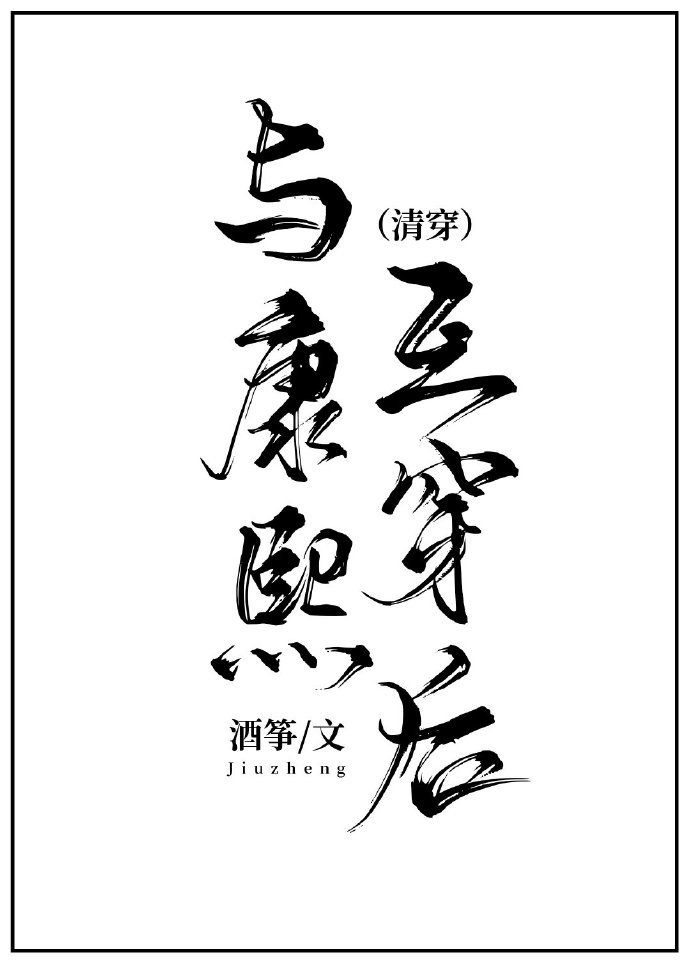 与康熙
（清穿）
互穿后
酒筝/文
Jiuzheng